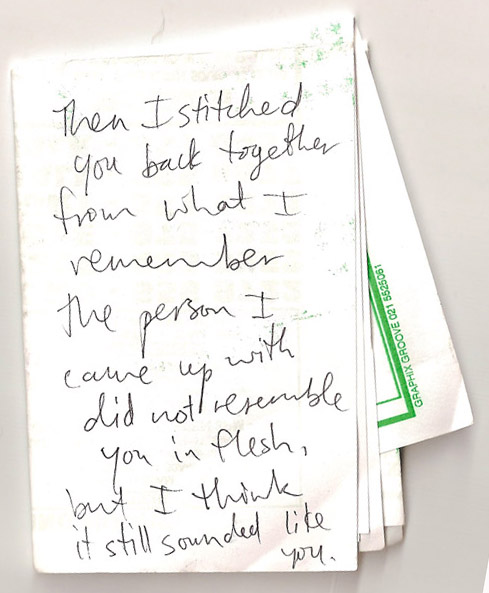 Then I stitched
you back together
from what I
remember
the person I
came up with
did not resemble
you in flesh,
but I think
it still sounded like
you.
GRAPHIX GROOVE 021 5525061